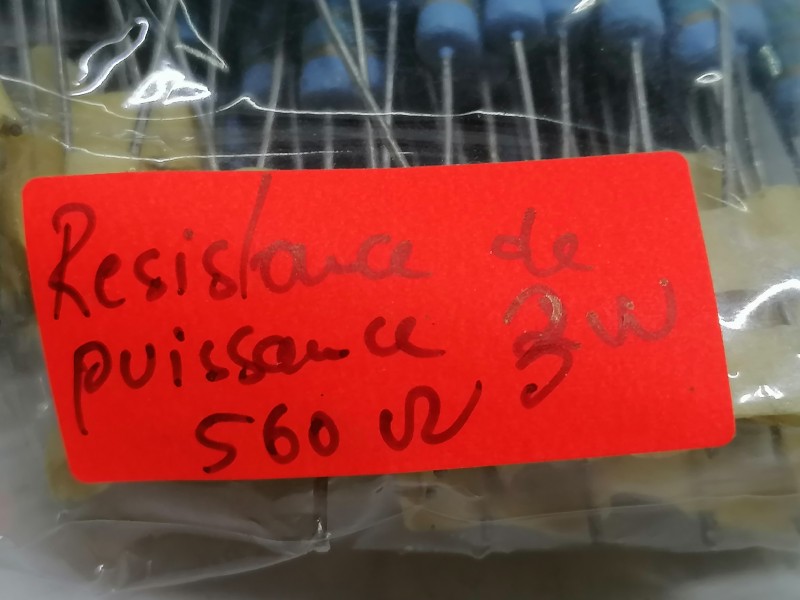 Resistance de
puissance 3W
560 Ω